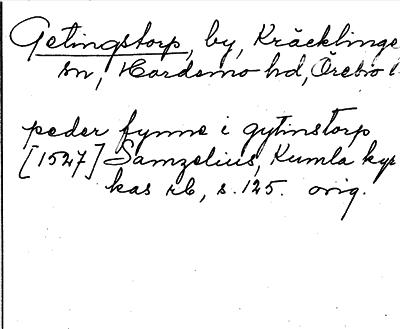 Getingstorp, by, Kräcklinge
sn, Hardemo hd, Örebro l
peder fynne i gytinstorp
[1527] Samzelius, Kumla kyr
kas rb, s. 125. orig.